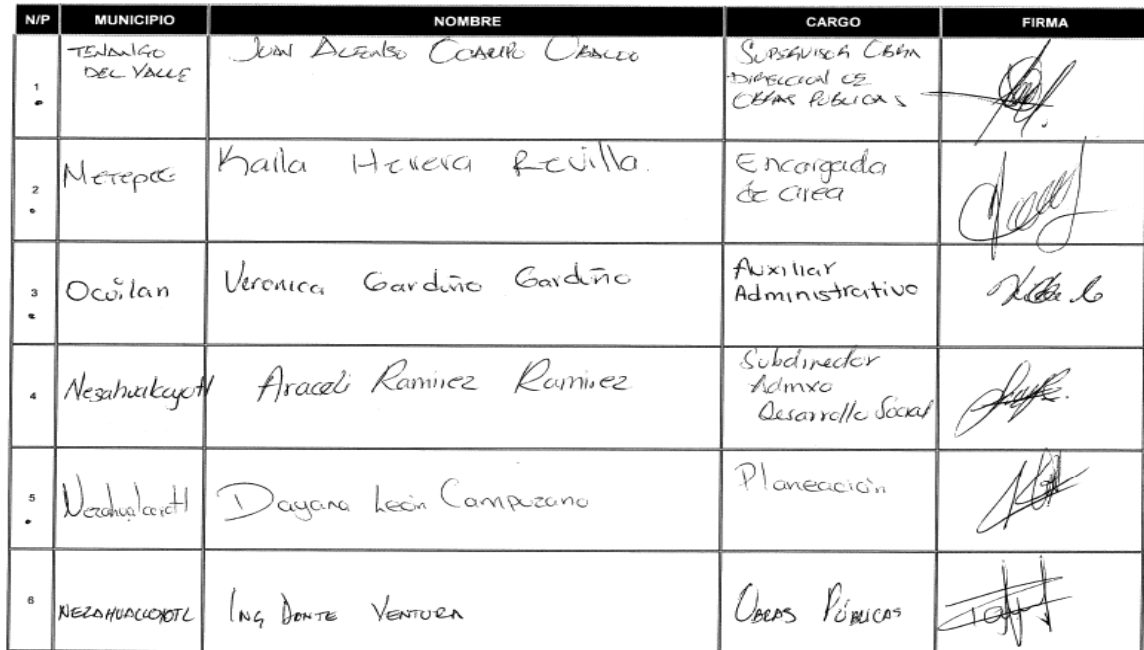 N/P MUNICIPIO NOMBRE CARGO FIRMA
1 TENANGO DEL VALLE JUAN ALFONSO OCAMPO UBALDO SUPERVISOR OBRA
DIRECCION DE
OBRAS PUBLICAS
2 Metepec Karla Herrera Revilla. Encargada
de area
3 Ocuilan Veronica Garduño Garduño Auxiliar
Administrativo
4 Nezahualcoyotl Araceli Ramirez Ramirez Subdirector
Admxo
Desarrollo Social
5 Nezahualcoyotl Dayana León Campuzano Planeación
6 NEZAHUALCOYOTL ING DANTE VENTURA OBRAS PÚBLICAS